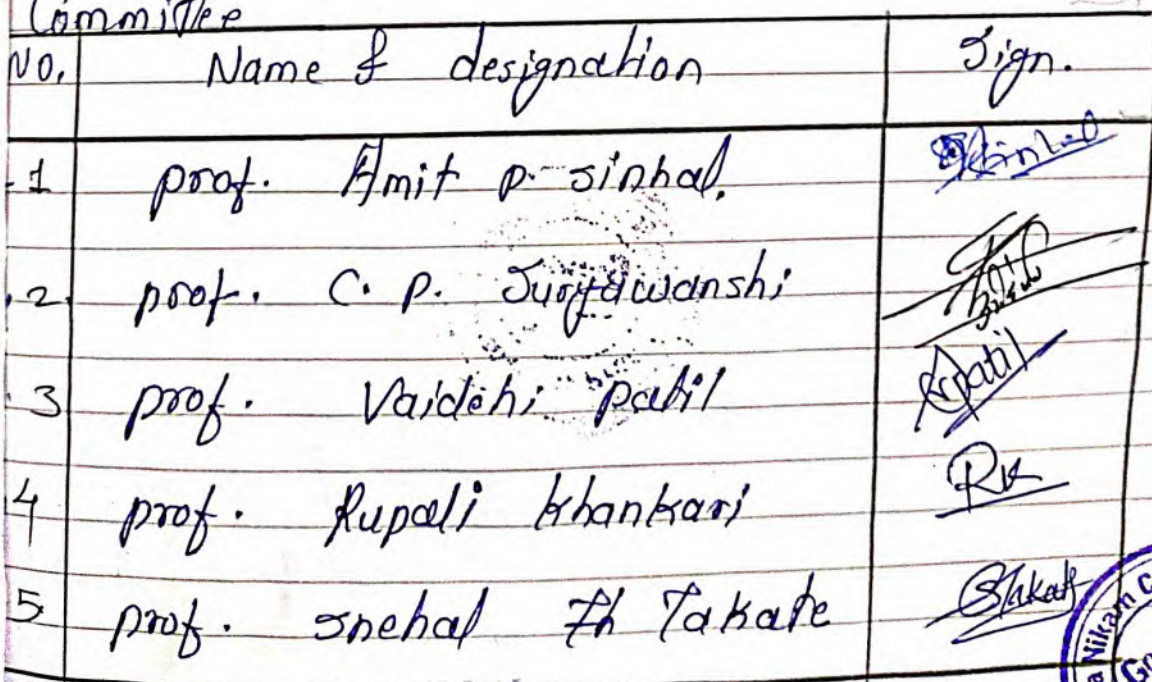 Committee
No. Name & designation Sign.
1 prof. Amit p. sinhal.
2 prof. C. P. Suryawanshi
3 prof. Vaidehi patil Vpatil
4 prof. Rupali khankari RK
5 prof. snehal Th Takate STakate
Nikam C